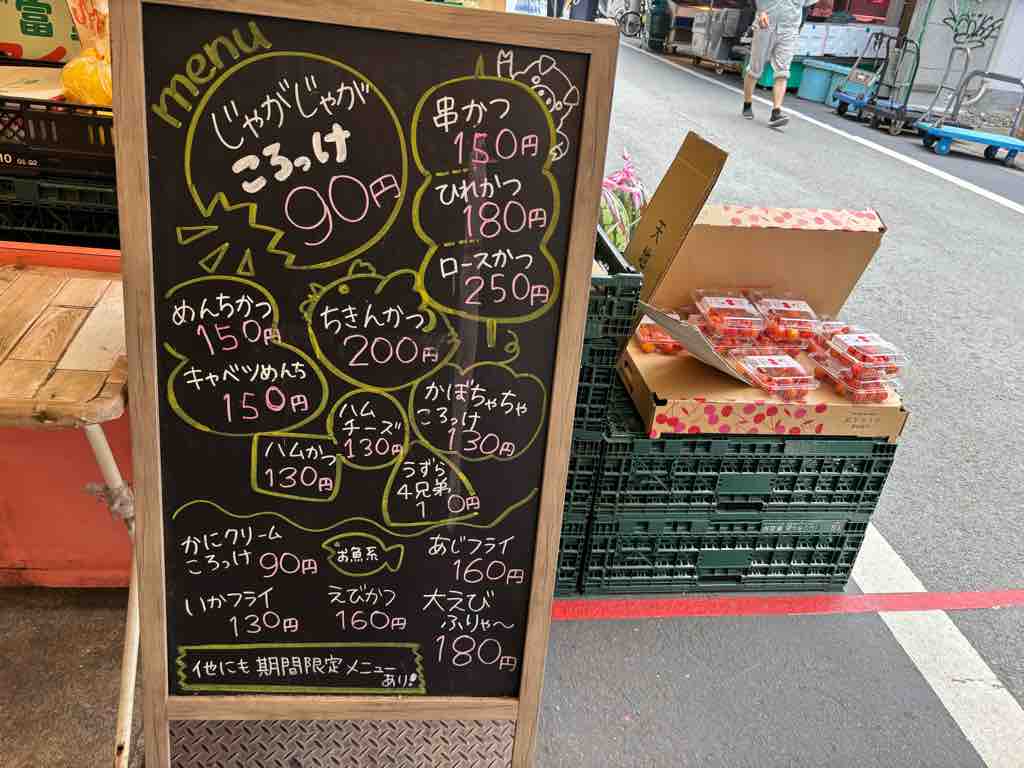 menu
じゃがじゃが
ころっけ
90円
串かつ
150円
ひれかつ
180円
ロースかつ
250円
めんちかつ
150円
キャベツめんち
150円
ちきんかつ
200円
ハム
チーズ
130円
かぼちゃちゃ
ころっけ
130円
ハムかつ
130円
うずら
4兄弟
かにクリーム
ころっけ 90円
お魚系
あじフライ
160円
いかフライ
130円
えびかつ
160円
大えび
ふりゃ〜
180円
他にも期間限定メニュー
あり!
富